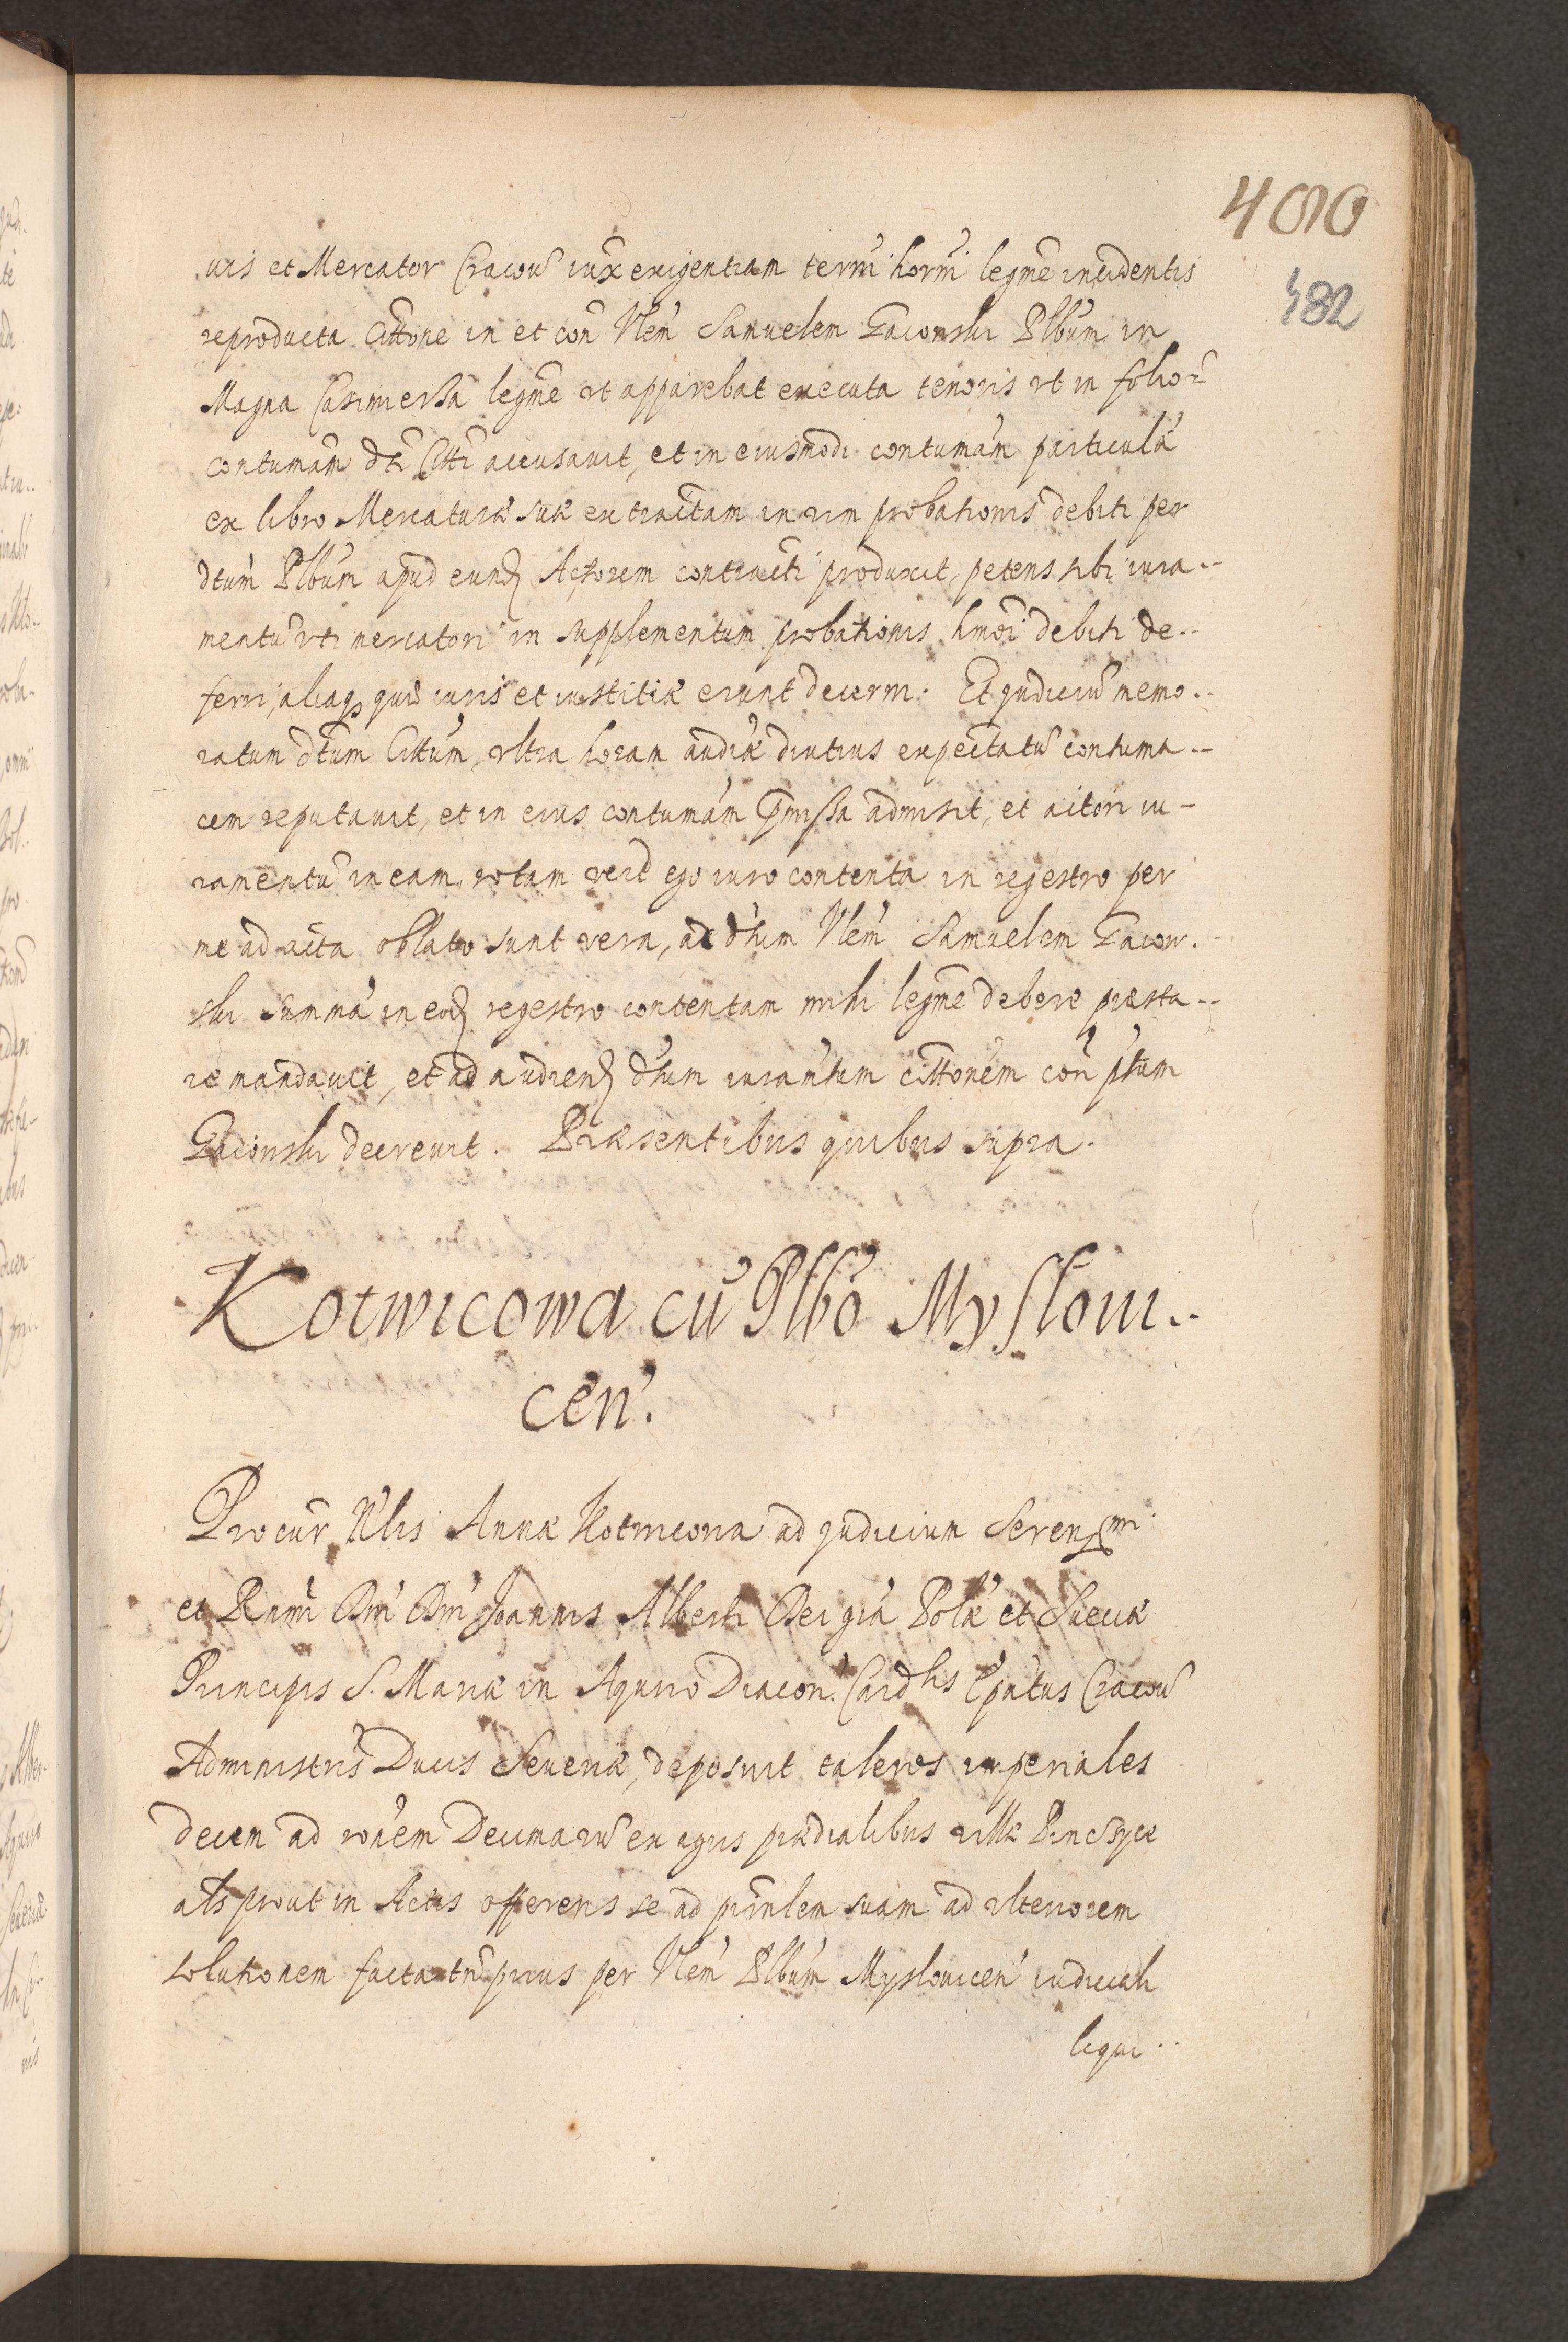 400
482
uis et Mercator Cracou iux exigentiam termi hormi legme incidentis
reproducta Cittone in et con Vlem Samuelem Gaconski Plbum in
Magna Casimersa legme ut apparebat executa tenoris ut in folio
contumam dti Citti accusauit, et in eiusmodi contumam particulã
ex libro Mercaturæ suæ extractam in uim probationis debiti per
dtum Plbum apud eund Actorem contracti produxit, petens sibi iura--
mentũ uti mercatori in supplementum probationis hmoi debiti de--
ferri, aliaq quæ iuris et iustitiæ erunt decerni. Et Judiciũ memo--
ratum dtum Cittum, ultra horam audiæ diutius expectatũ contuma--
cem reputauit, et in eius contumam præmissa admisit, et actori iu-
ramentũ in eam rotam ego iuro contenta in regestro per
me ad acta oblato sunt vera, ac dtum Vlem Samuelem Gacon.
ski summã in eod regestro contentam mihi legme debere præsta--
re mandauit, et ad audiend dtum iuramtum cittonem con ptum
Gaconski decreuit. Præsentibus quibus supra.
Kotwicowa cũ Plbo Mysloui--
cen.
Procur Nlis Annæ Kotwicowa ad Judicium Serenmi
et Rmi Dni Dni Joannis Alberti Dei gra Polæ et Sueciæ
Principis S. Mariæ in Aquiro Diacon. Cardlis Epatus Cracou
Administris Ducis Seueriæ, deposuit taleros imperiales
decem ad ronem Decimarũ ex agris prædialibus uillæ
als prout in Actis offerens se ad prinlem suam ad ulteriorem
solutionem facta tn prius per Vlem Plbum Myslouicen iudiciali
liqui--